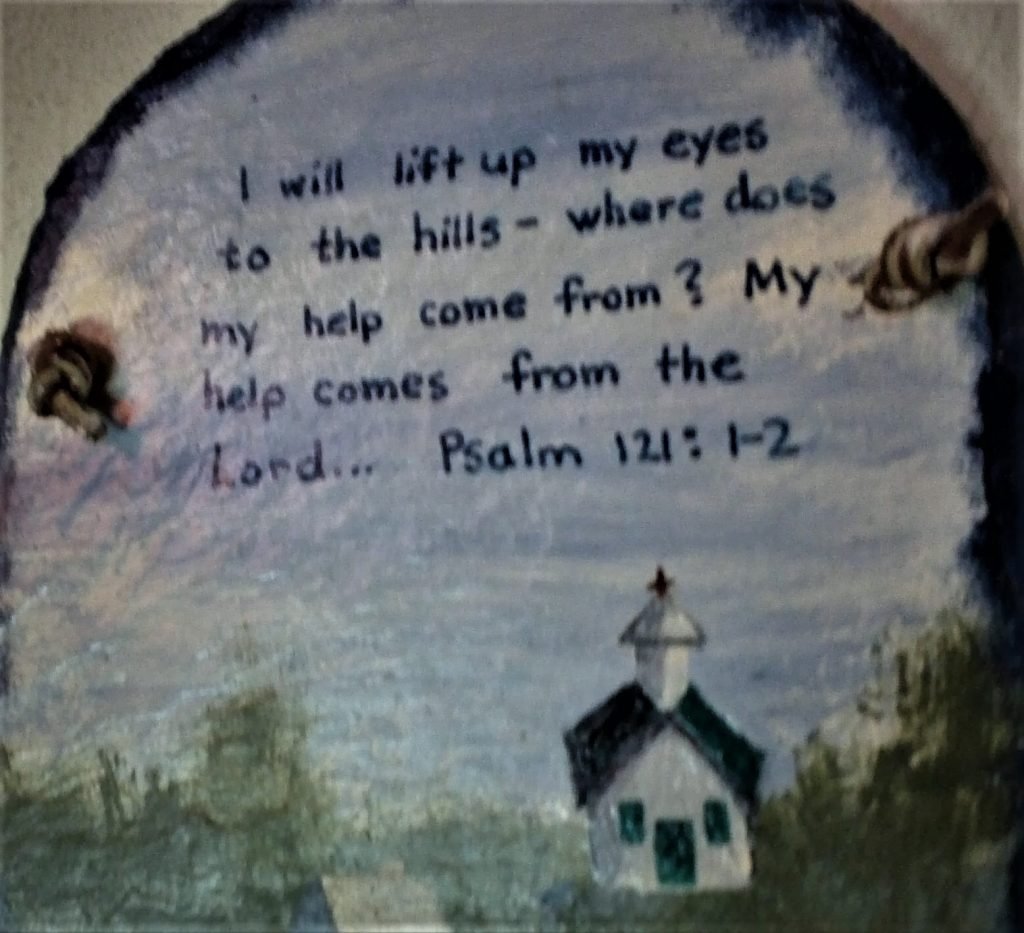 I will lift up my eyes
to the hills - where does
my help come from? My
help comes from the
Lord... Psalm 121: 1-2